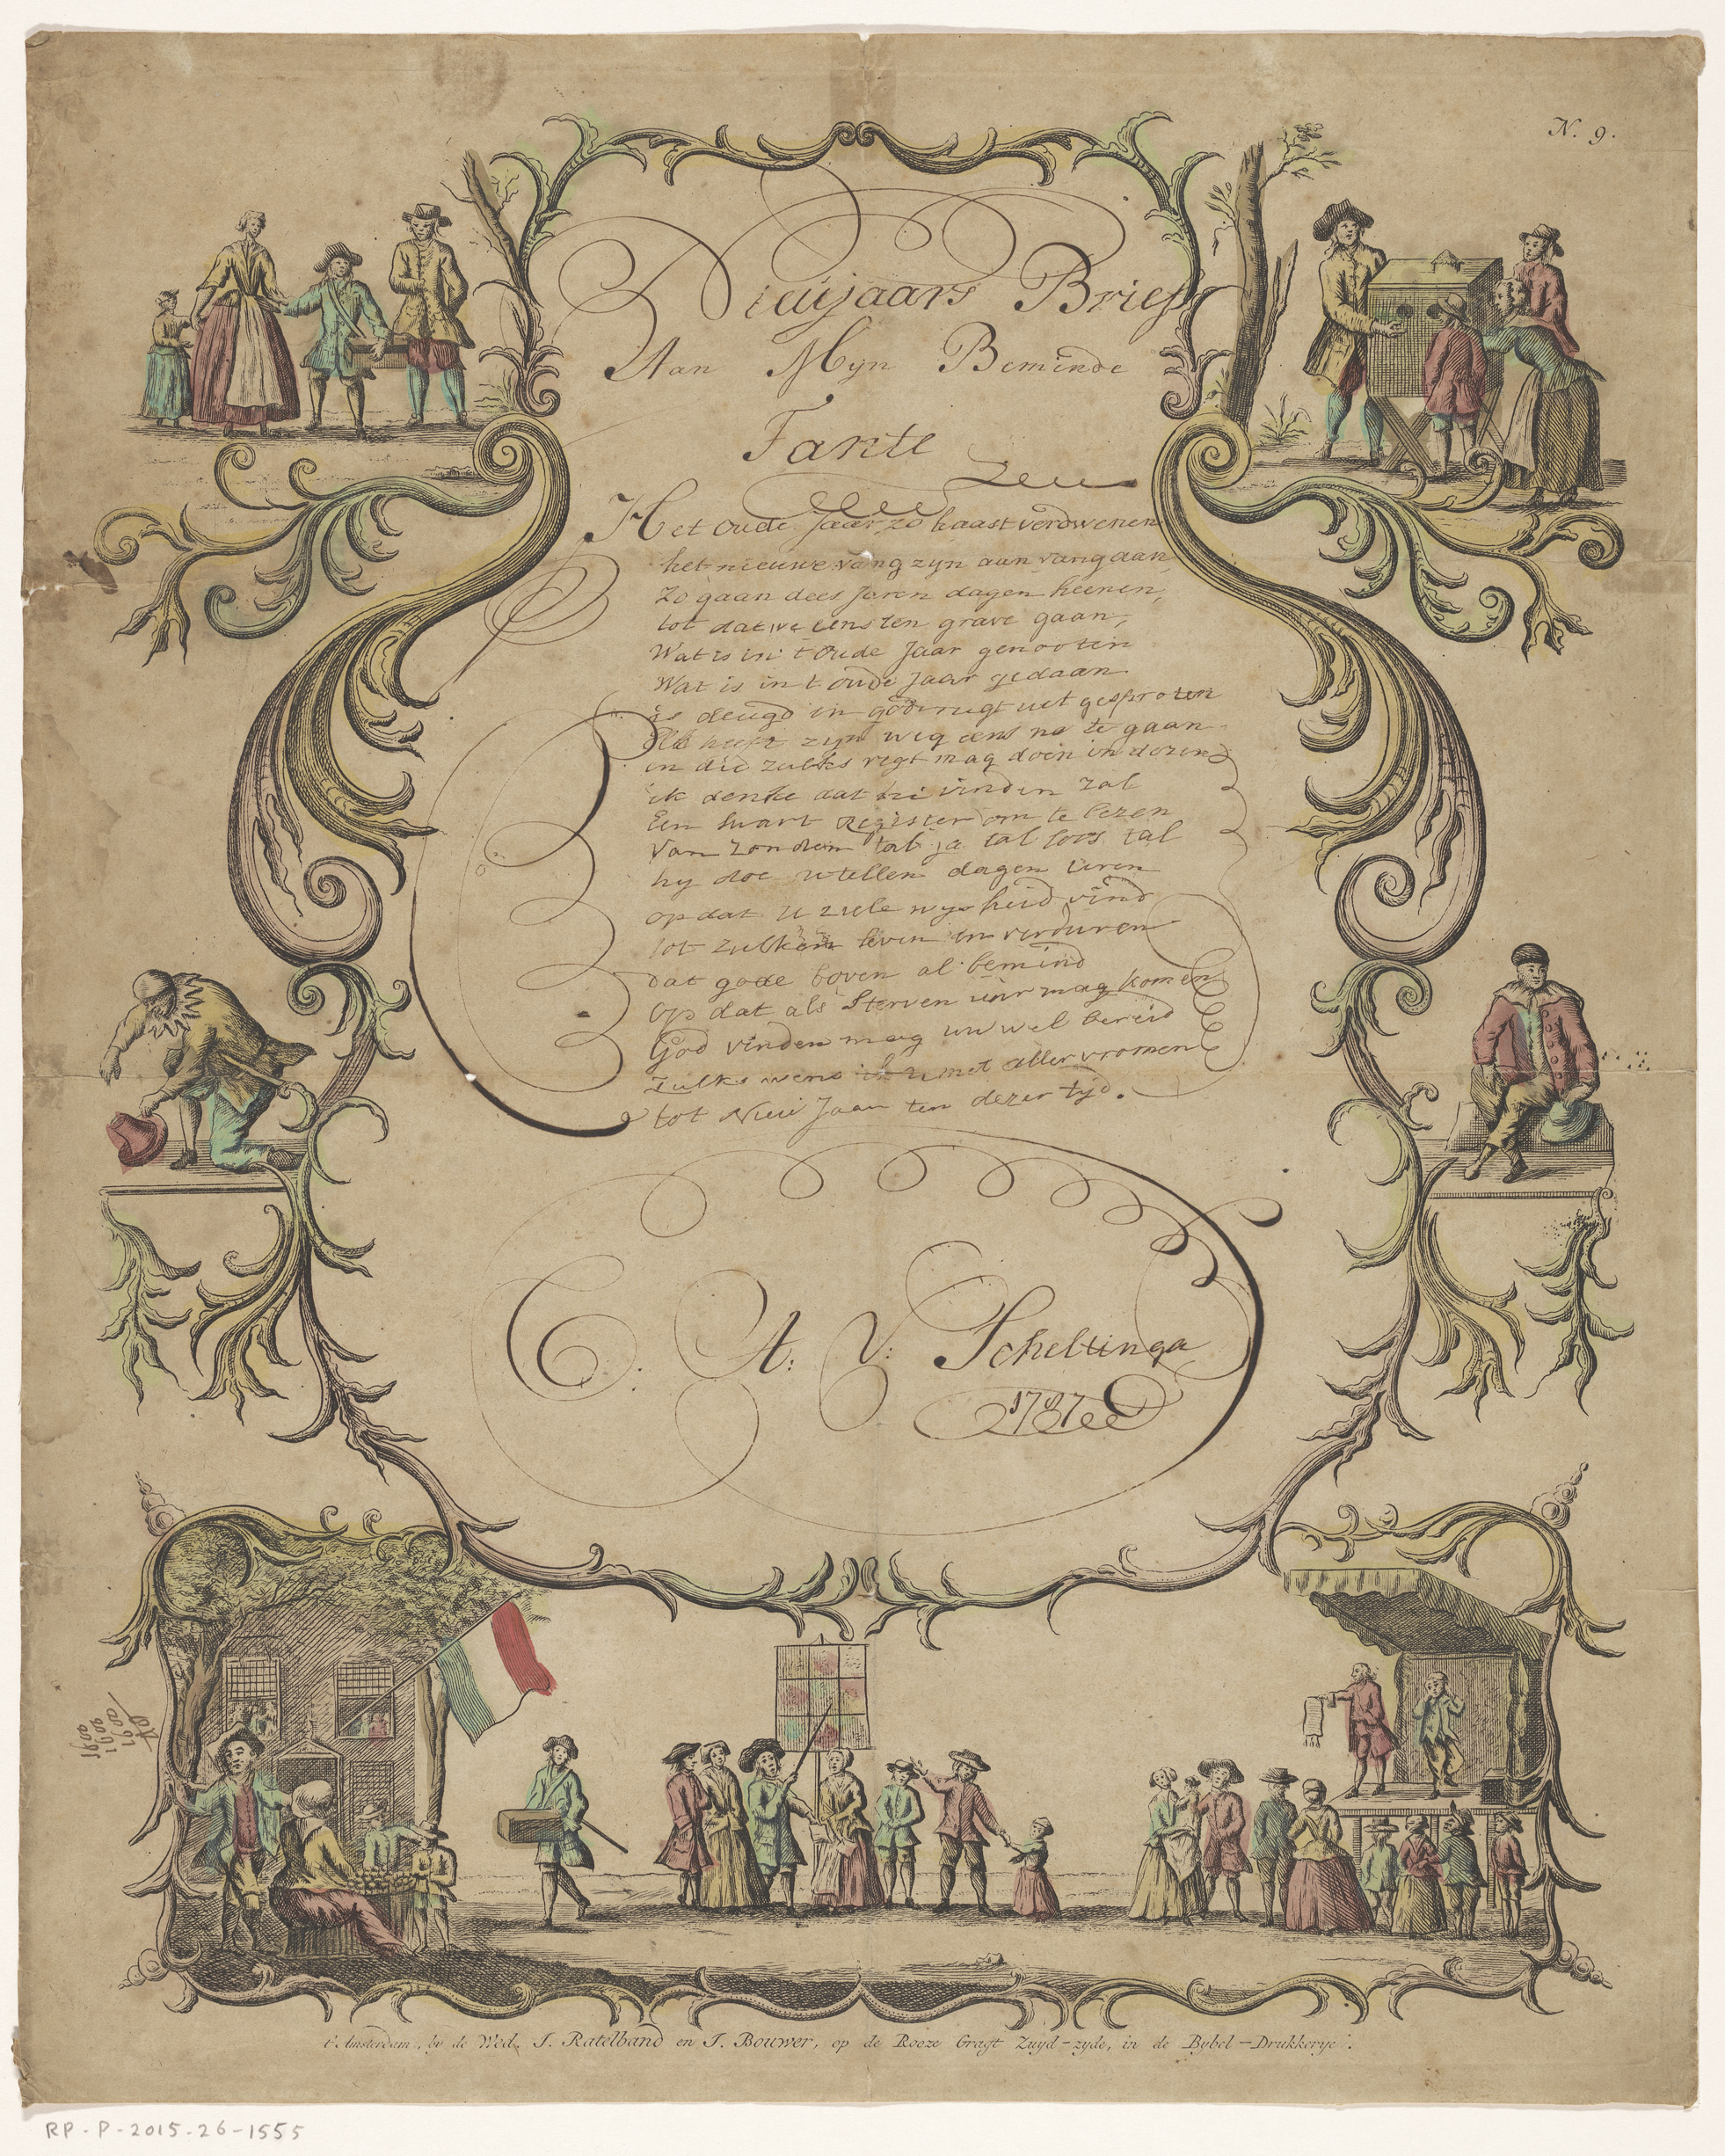 N. 9.
Nieujaars Brief
Aan Myn Beminde
Tante
Het oude Jaar zo haast verdwenen
het nieuwe vang zyn aan vang aan
Zo gaan dees Jaren dagen heenen,
tot dat we eens ten grave gaan,
Wat is in t Oude Jaar genooten
Wat is in t oude Jaar gedaan
is deugd in godvrugt uit gesproten
heeft zyn weg eens na te gaan
en die zulks regt mag doen in dezen
ik denke dat hi vinden zal
Een swart Register om te lezen
Van Zonden tal ja tal loos tal
hy doe u tellen dagen uren
op dat U ziele wysheid vind
tot zulken leven in verduren
dat gode boven al bemind
Op dat als Sterven uur mag komen
God vinden mag uw wel bereid
Zulks wens ik u met aller vromen
tot Nieu Jaar ten dezer tyd.
C. A: V: Scheltinga
1787
1600
1606
1600
t'Amsterdam, by de Wed. J. Ratelband en J. Bouwer, op de Rooze Graft Zuyd-zyde, in de Bybel-Drukkerye.
RP-P-2015-26-1555